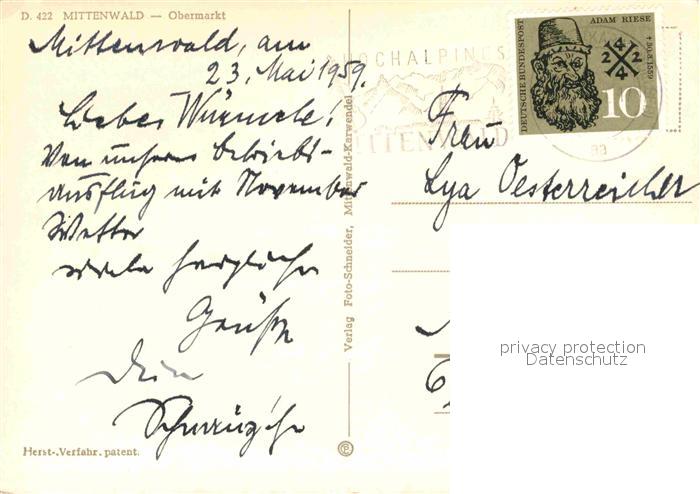 D. 422 MITTENWALD — Obermarkt
Mittenwald, am
23. Mai 1959.
Liebes Würmele!
Von unserem Betriebs-
ausflug mit November
Wetter
viele herzliche
Grüße
Dein
Herst.-Verfahr. patent.
Verlag Foto-Schneider, Mittenwald-Karwendel
HOCHALPINES
MITTENWALD
DEUTSCHE BUNDESPOST
ADAM RIESE
† 30.3.1559
2 4 2 4
10
Frau
Lya Oesterreicher
privacy protection
Datenschutz